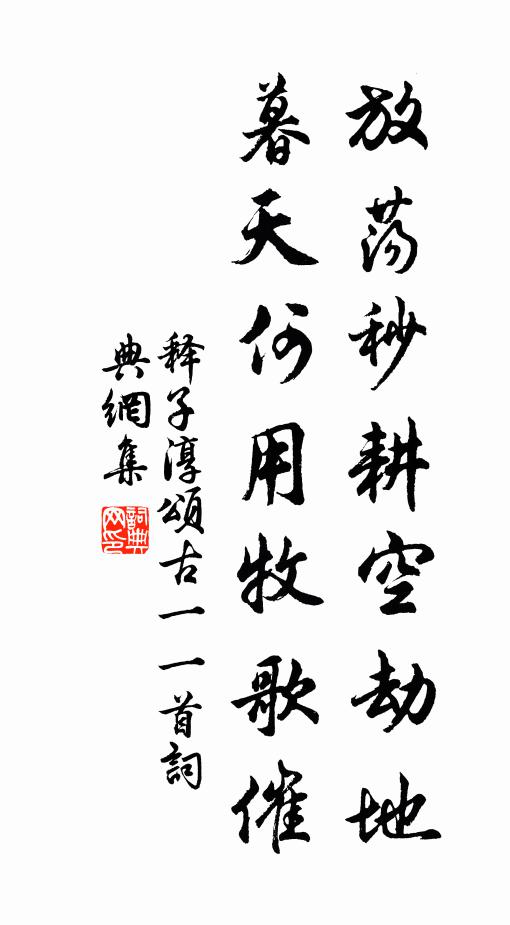 放荡秒耕空劫地
暮天何用牧歌催
释子淳頌古一一首詞
典網集
詞典网印